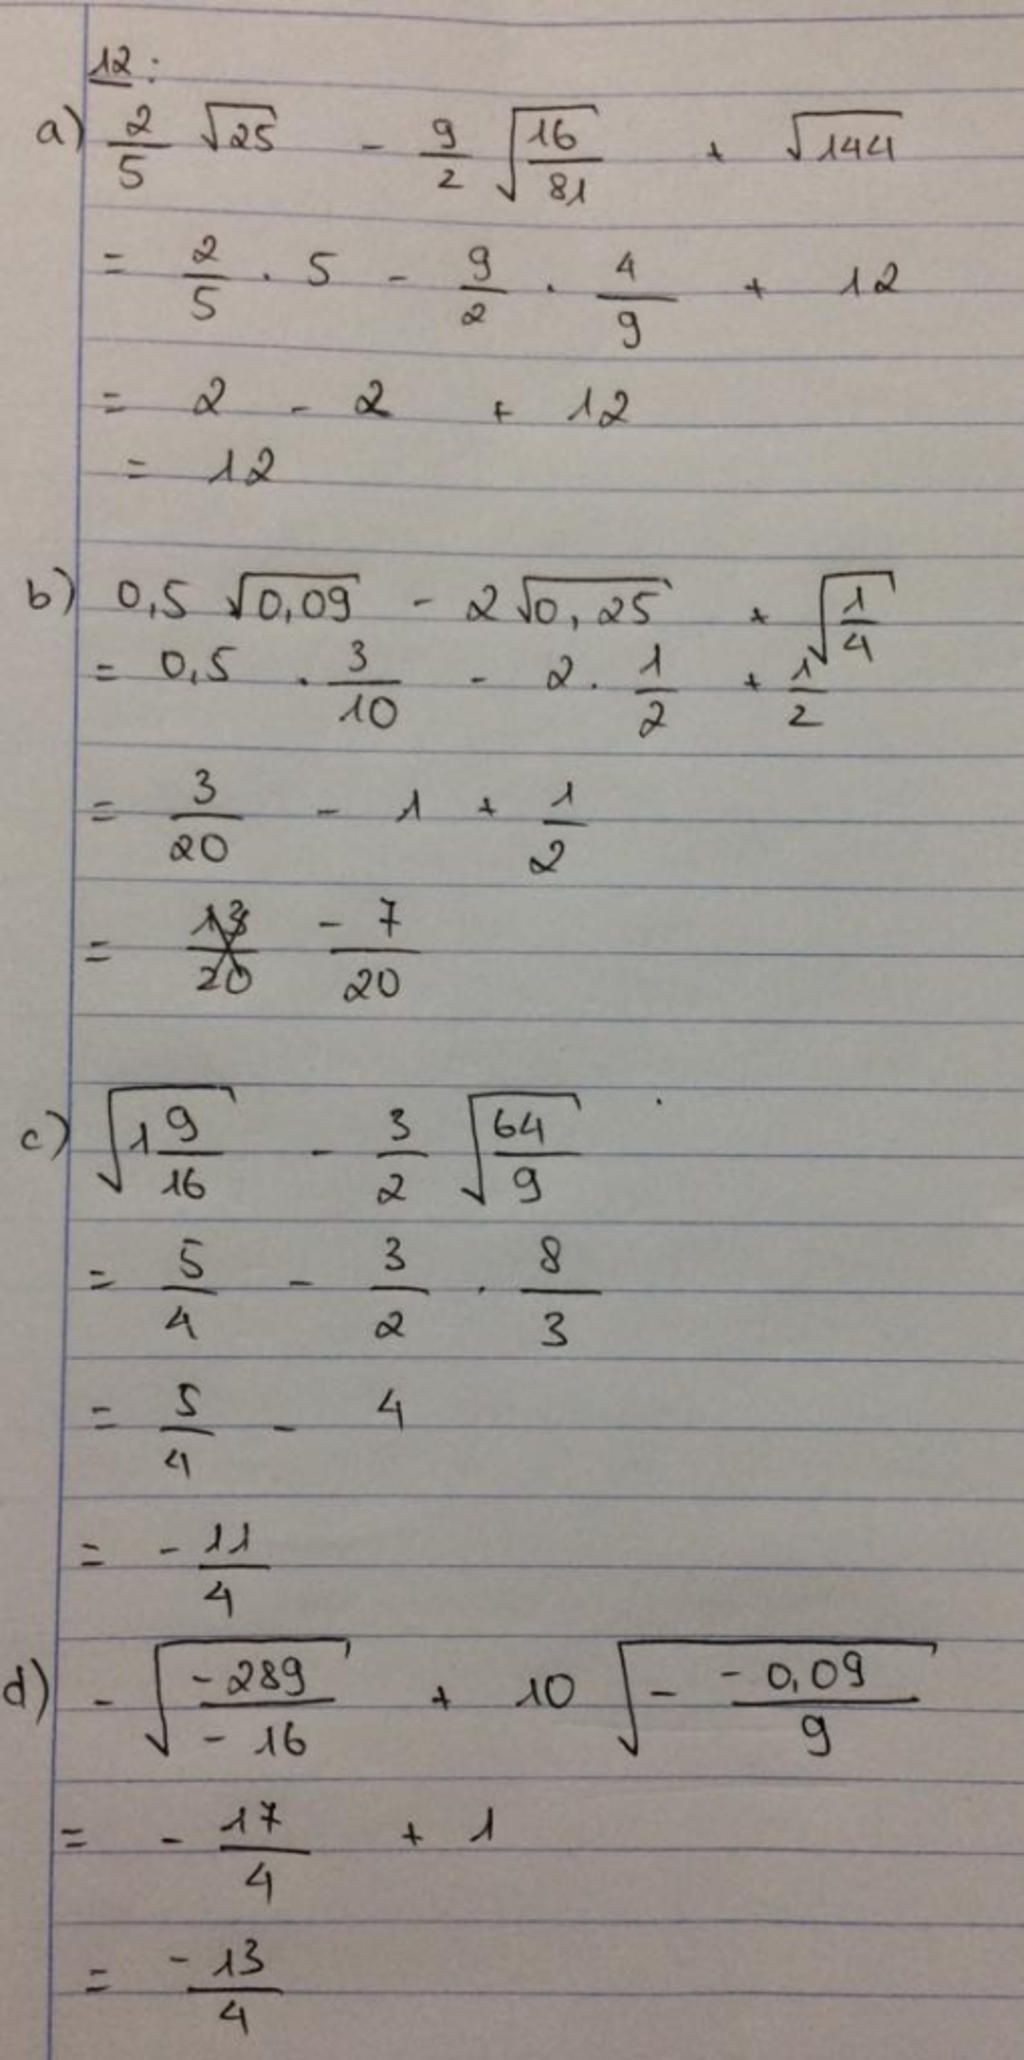 12:
a) 2/5 √25 - 9/2 √(16/81) + √144
= 2/5 · 5 - 9/2 · 4/9 + 12
= 2 - 2 + 12
= 12
b) 0,5 √0,09 - 2√0,25 + √(1/4)
= 0,5 · 3/10 - 2 · 1/2 + 1/2
= 3/20 - 1 + 1/2
= -7/20
c) √(1 9/16) - 3/2 √(64/9)
= 5/4 - 3/2 · 8/3
= 5/4 - 4
= -11/4
d) - √(-289/-16) + 10 √(- -0,09/9)
= - 17/4 + 1
= -13/4